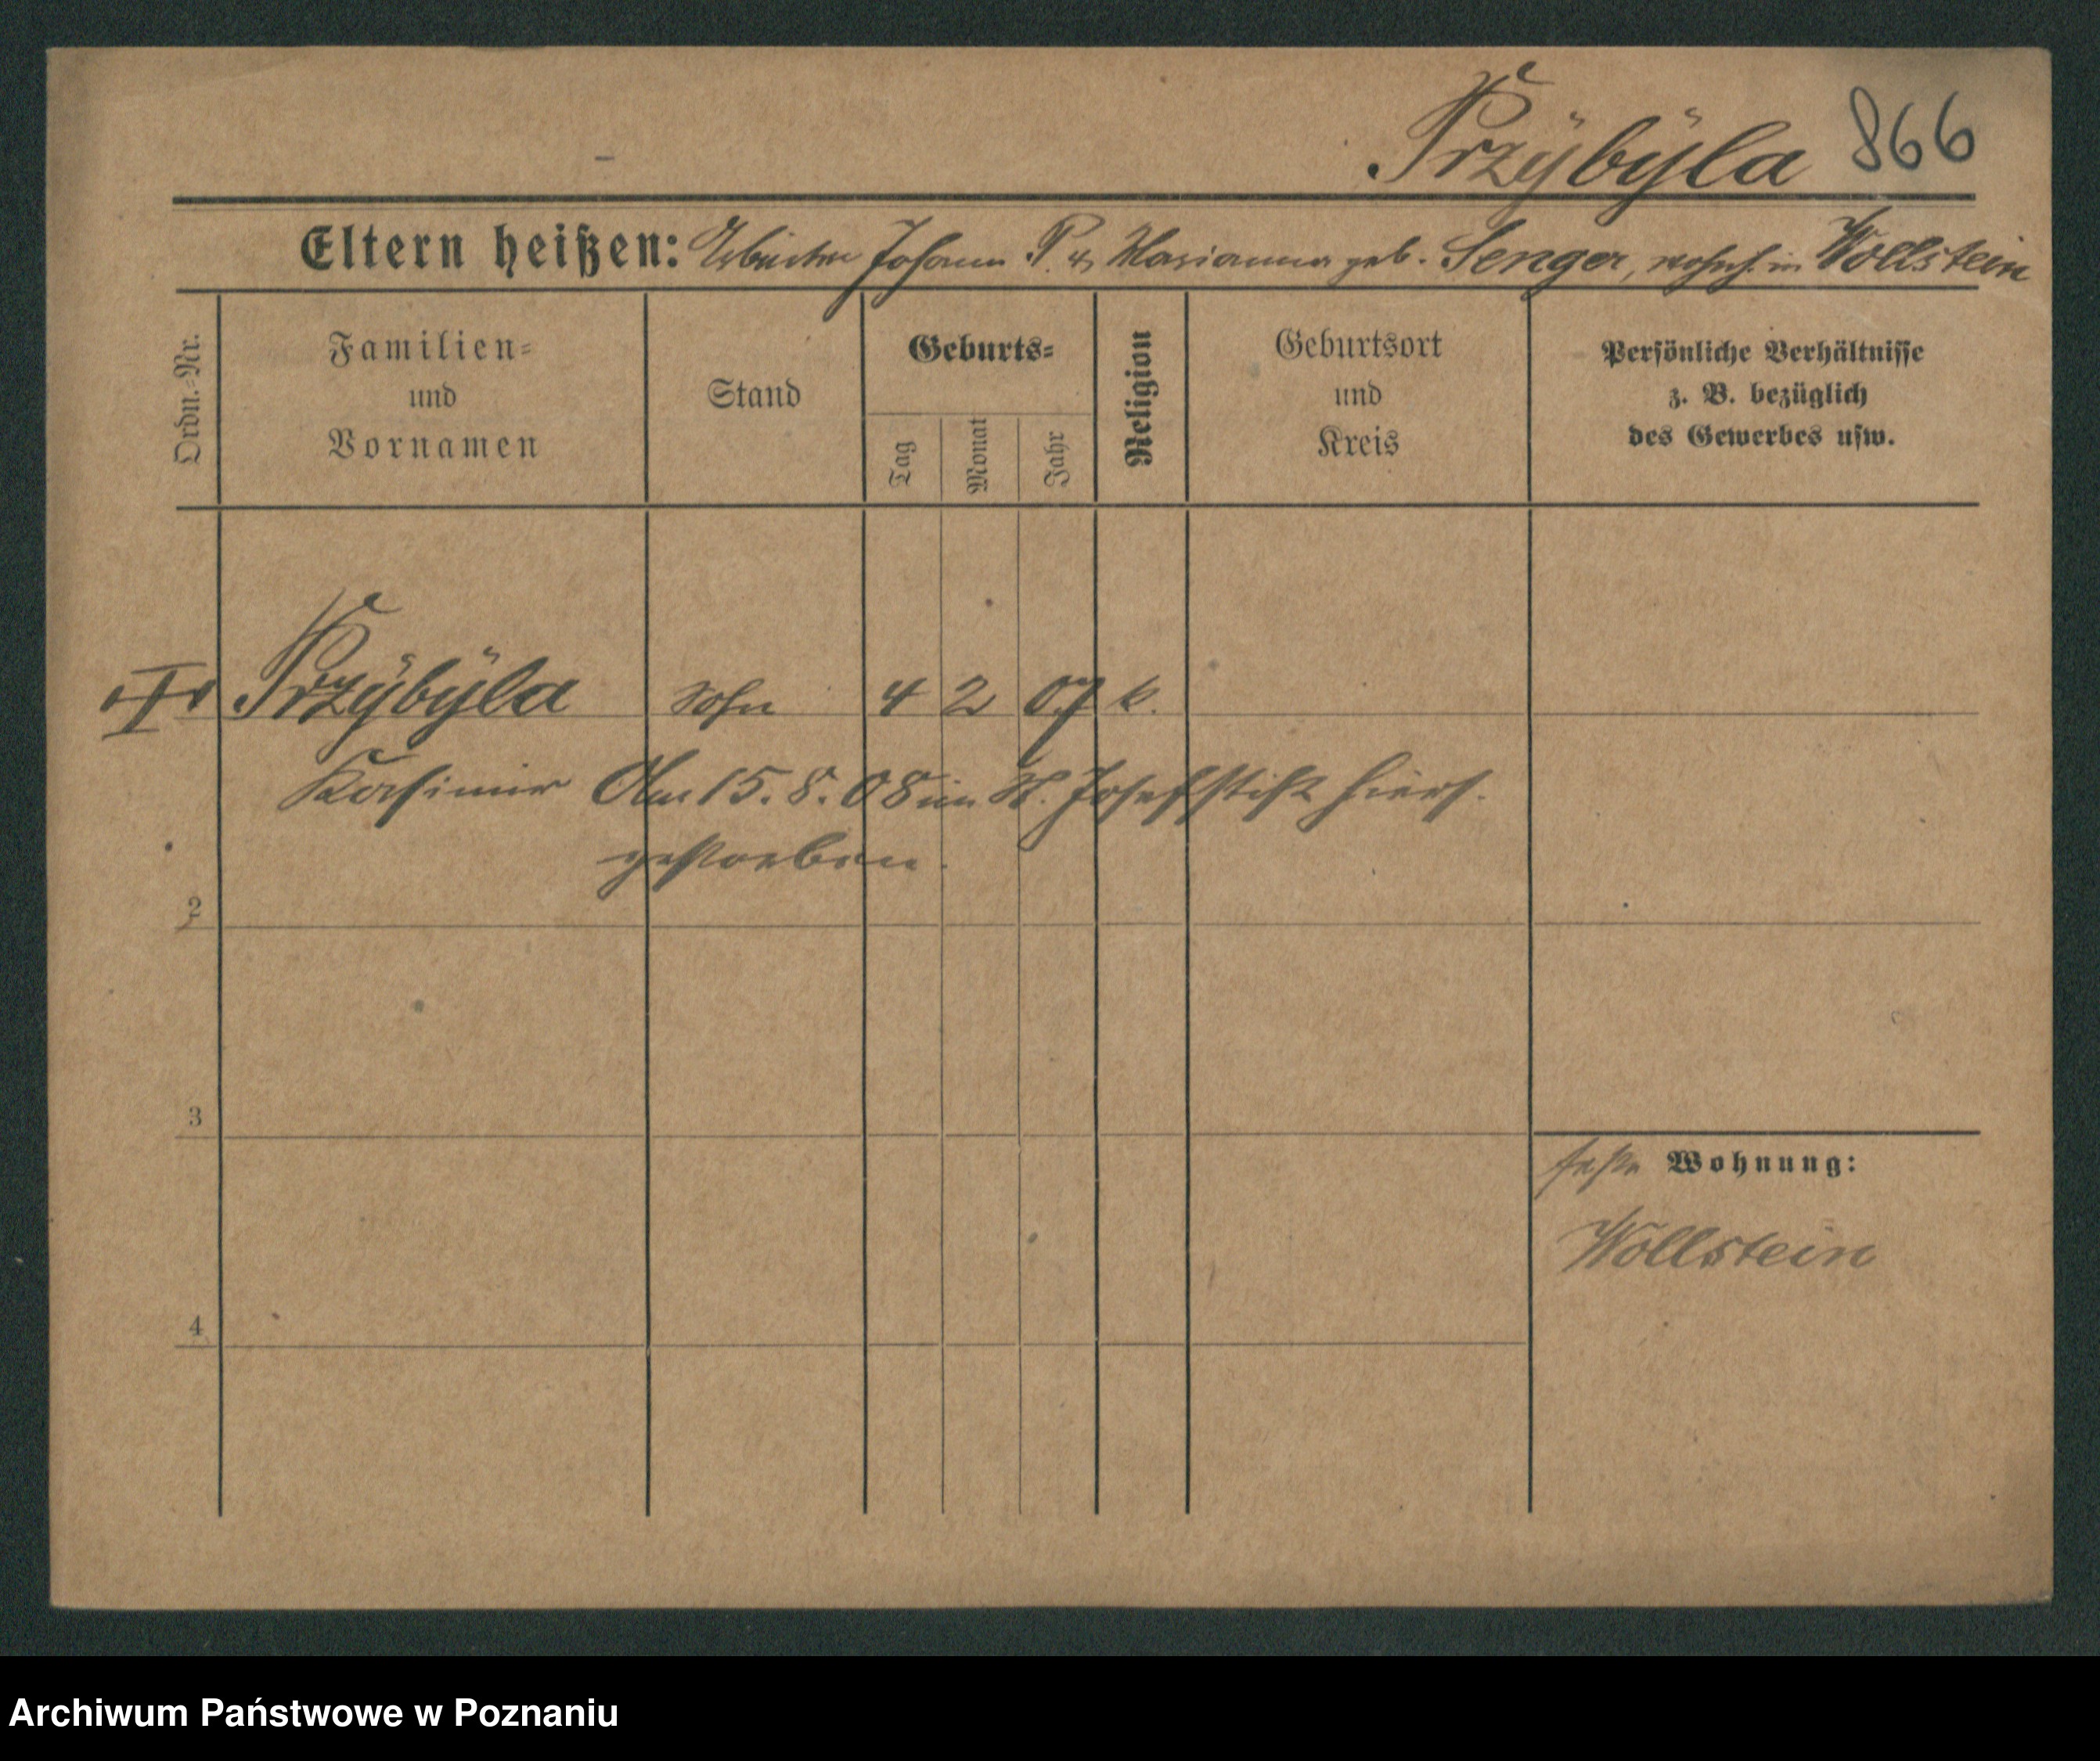 Przÿbÿla 866
Eltern heißen: Arbeiter Johann P. u. Marianna geb. Senger, wohnh. in Wollstein
Ordn.-Nr.
Familien-
und
Vornamen
Stand
Geburts-
Tag
Monat
Jahr
Religion
Geburtsort
und
Kreis
Persönliche Verhältnisse
z. B. bezüglich
des Gewerbes usw.
Przÿbÿla Sohn 4 2 07 k.
Kasimir Am 15. 8. 08 im St. Josefstift hiers.
gestorben.
2
3
4
feste Wohnung:
Wollstein
Archiwum Państwowe w Poznaniu